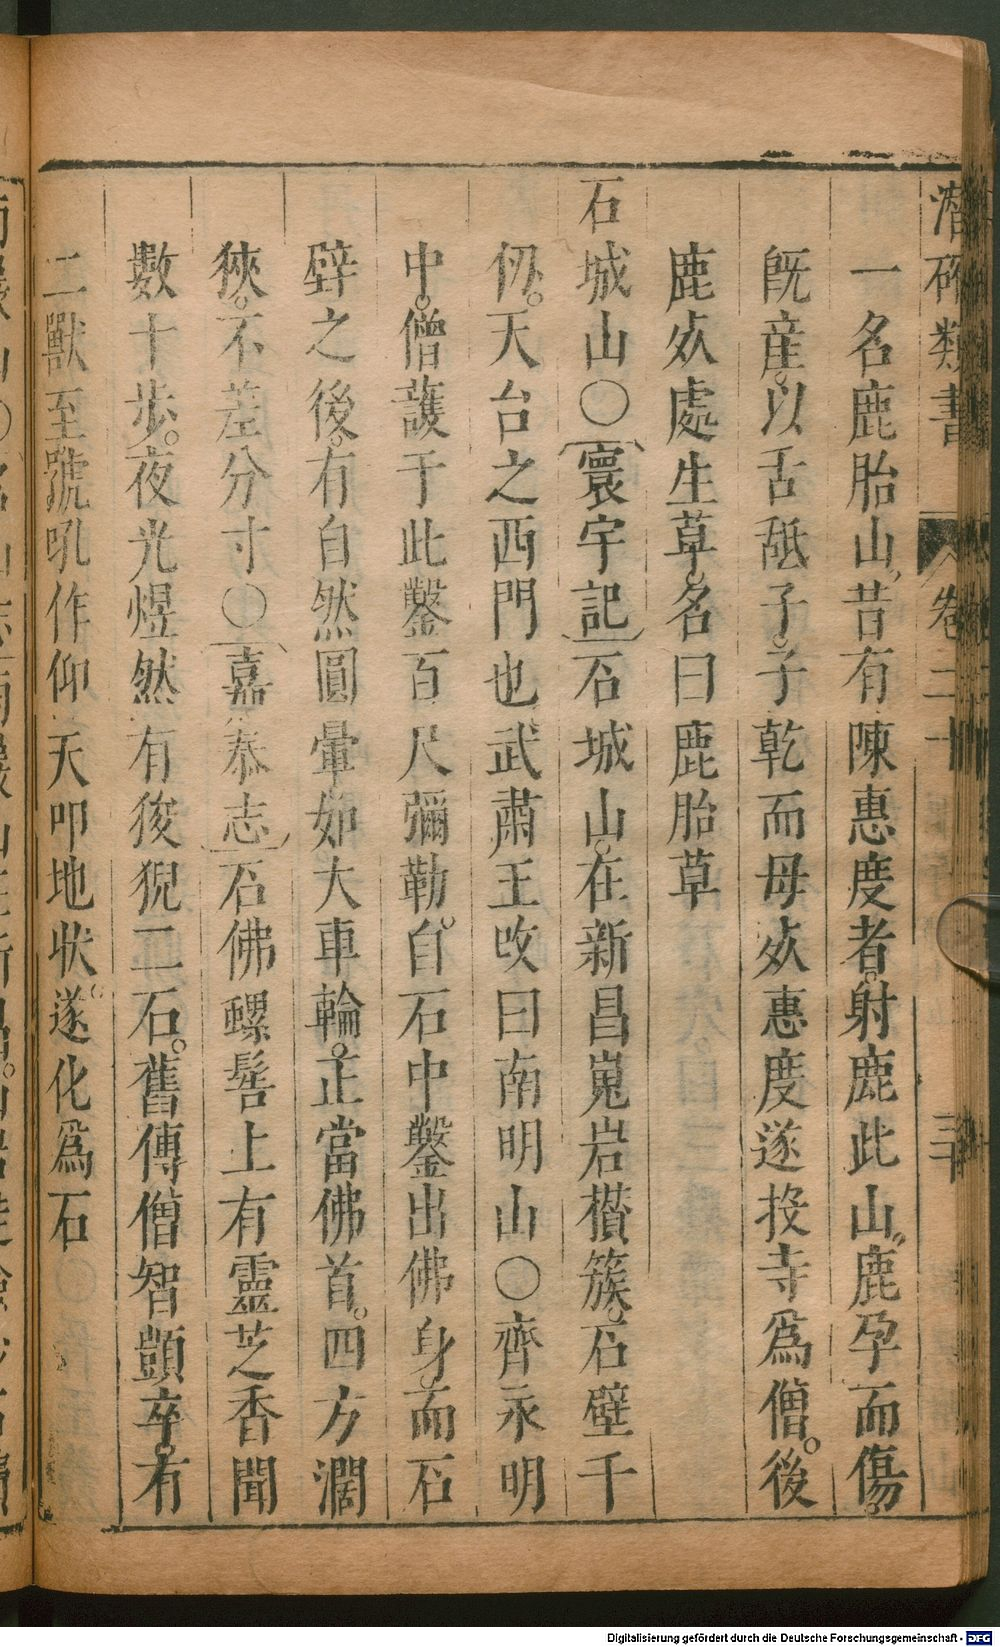 潛確類書 卷二十 三十
一名鹿胎山昔有陳惠度者。射鹿此山。鹿孕而傷。
既産。以舌舐子。子乾而母死惠度遂投寺爲僧。後
鹿死處生草。名曰鹿胎草
石城山○寰宇記石城山。在新昌嵬岩欑簇。石壁千
仞。天台之西門也武肅王改曰南明山○齊永明
中。僧護于此鑿百尺彌勒。自石中鑿出佛身。而石
壁之後。有自然圓暈。如大車輪。正當佛首。四方濶
狹。不差分寸○嘉泰志石佛螺髻上有靈芝香聞
數十步。夜光煜然有狻猊二石。舊傳僧智顗卒。有
二獸至號吼作仰天叩地状。遂化爲石
Digitalisierung gefördert durch die Deutsche Forschungsgemeinschaft - DFG